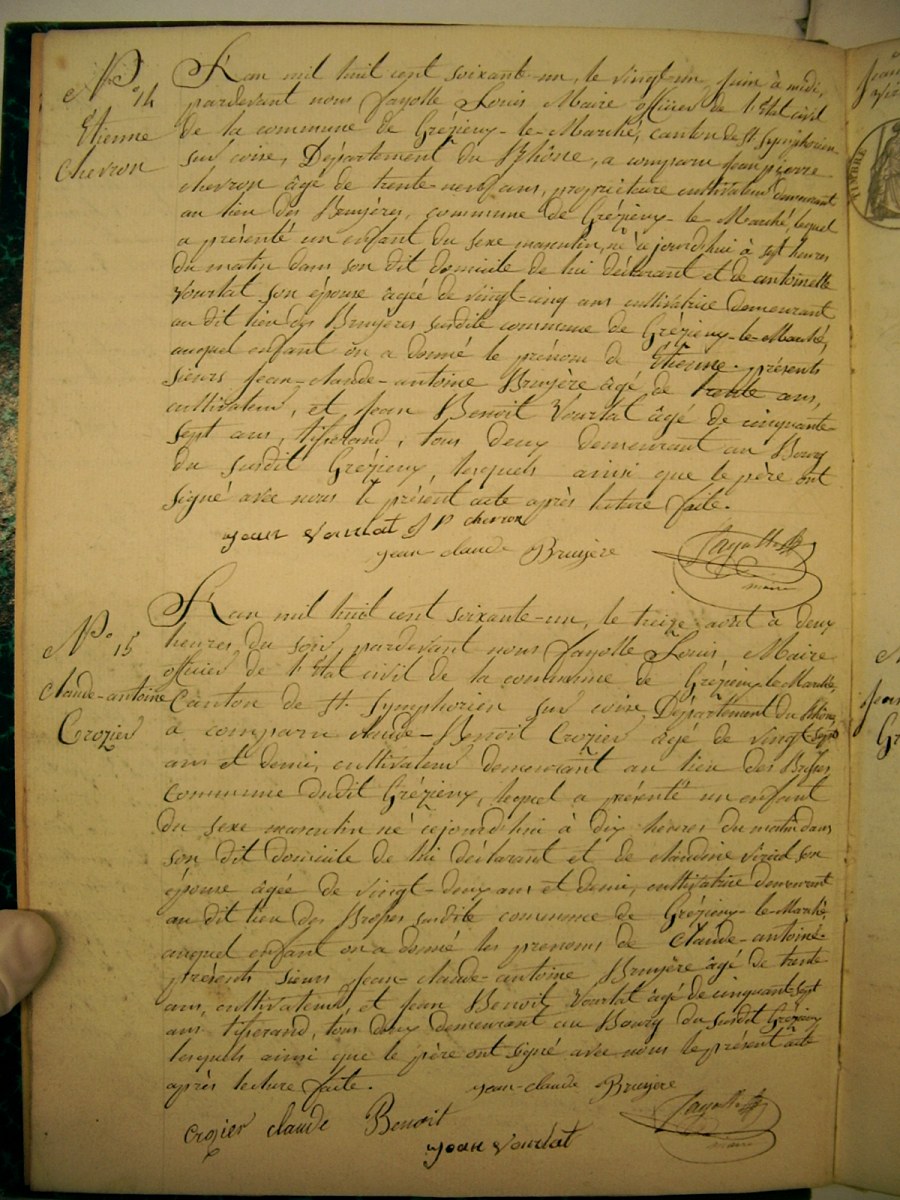 N° 14
Etienne
Chevron
L'an mil huit cent soixante-un, le vingt un juin à midi,
pardevant nous Fayolle Louis Maire officier de l'Etat civil
de la commune de Grézieux-le-Marché, canton de St Symphorien
sur coise, Département du Rhône, a comparu Jean pierre
chevron âgé de trente-neuf ans, propriétaire cultivateur demeurant
au lieu des Bruyères, commune de Grézieux-le-Marché, lequel
a présenté un enfant du sexe masculin, né ce jourd'hui à sept heures
du matin dans son dit domicile de lui déclarant et de antoinette
Vourlat son épouse âgée de vingt-cinq ans cultivatrice demeurant
au dit lieu des Bruyeres susdite commune de Grézieux-le-Marché,
auquel enfant on a donné le prénom de Etienne. présents
sieurs Jean-claude-antoine Bruyère âgé de trente ans,
cultivateur, et Jean Benoit Vourlat âgé de cinquante-
sept ans, tisserand, tous deux demeurant au Bourg
du susdit Grézieux, lesquels ainsi que le père ont
signé avec nous le présent acte après lecture faite.
jean vourlat J P chevron
jean claude Bruyère
Fayolle
maire
N° 15
Claude-antoine
Crozier
L'an mil huit cent soixante-un, le treize avril à deux
heures du soir, pardevant nous Fayolle Louis Maire
officier de l'Etat civil de la commune de Grézieux-le-Marché,
Canton de St Symphorien sur coise Département du Rhône,
a comparu claude-Benoit Crozier âgé de vingt-sept
ans et demi, cultivateur demeurant au lieu des Brosses
commune dudit Grézieux, lequel a présenté un enfant
du sexe masculin né cejourd'hui à dix heures du matin dans
son dit domicile de lui déclarant et de claudine son
épouse âgée de vingt-deux ans et demi, cultivatrice demeurant
au dit lieu des Brosses susdite commune de Grézieux-le-Marché,
auquel enfant on a donné les prenoms de Claude-antoine-
présents sieurs Jean-claude-antoine Bruyère âgé de trente
ans, cultivateur, et Jean Benoit Vourlat âgé de cinquante sept
ans tisserand, tous deux demeurant au Bourg du susdit Grézieux
lesquels ainsi que le père ont signé avec nous le présent acte
après lecture faite.
jean-claude Bruyère
Fayolle
maire
crozier claude Benoit
jean vourlat
TIMBRE